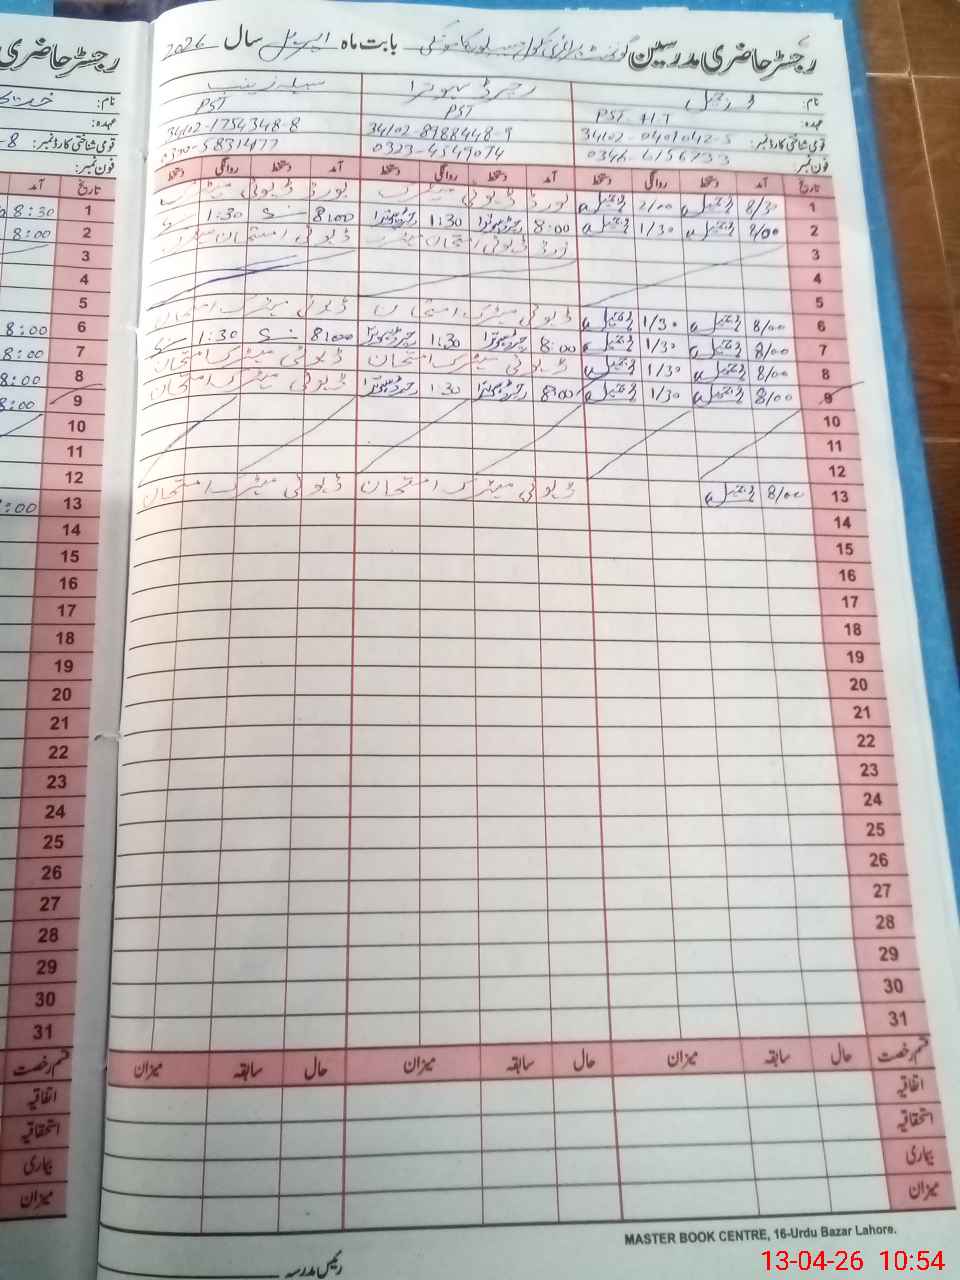 رجسٹر حاضری مدرسین گورنمنٹ پرائمری سکول بابت ماہ اپریل سال 2026
رجسٹر حاضری
نام:
عہدہ: PST H.T PST PST
قومی شناختی کارڈ نمبر: 34102-0401042-5 34102-8988448-9 34102-1754348-8
فون نمبر: 0346-6156733 0323-4549074 0300-5831477
تاریخ آمد دستخط روانگی دستخط آمد دستخط روانگی دستخط آمد دستخط روانگی دستخط
1 8/30 2/00 بورڈ ڈیوٹی میٹرک بورڈ ڈیوٹی میٹرک
2 8/00 1/30 8:00 1:30 8:00 1:30
3 بورڈ ڈیوٹی امتحان میٹرک ڈیوٹی امتحان میٹرک
4
5
6 8/00 1/30 ڈیوٹی میٹرک امتحان ڈیوٹی میٹرک امتحان
7 8/00 1/30 8:00 1:30 8:00 1:30
8 8/00 1/30 ڈیوٹی میٹرک امتحان ڈیوٹی میٹرک امتحان
9 8/00 1/30 8:00 1:30 ڈیوٹی میٹرک امتحان
10
11
12
13 8/00 ڈیوٹی میٹرک امتحان ڈیوٹی میٹرک امتحان
14
15
16
17
18
19
20
21
22
23
24
25
26
27
28
29
30
31
قسم رخصت حال سابقہ میزان حال سابقہ میزان حال سابقہ میزان
اتفاقیہ
استحقاقیہ
بیماری
میزان
MASTER BOOK CENTRE, 16-Urdu Bazar Lahore.
رئیس مدرسہ
نام:
عہدہ:
قومی شناختی کارڈ نمبر: -8
فون نمبر:
تاریخ آمد
1 8:30
2 8:00
3
4
5
6 8:00
7 8:00
8 8:00
9 8:00
10
11
12
13 8:00
14
15
16
17
18
19
20
21
22
23
24
25
26
27
28
29
30
31
قسم رخصت
اتفاقیہ
استحقاقیہ
بیماری
میزان
13-04-26 10:54